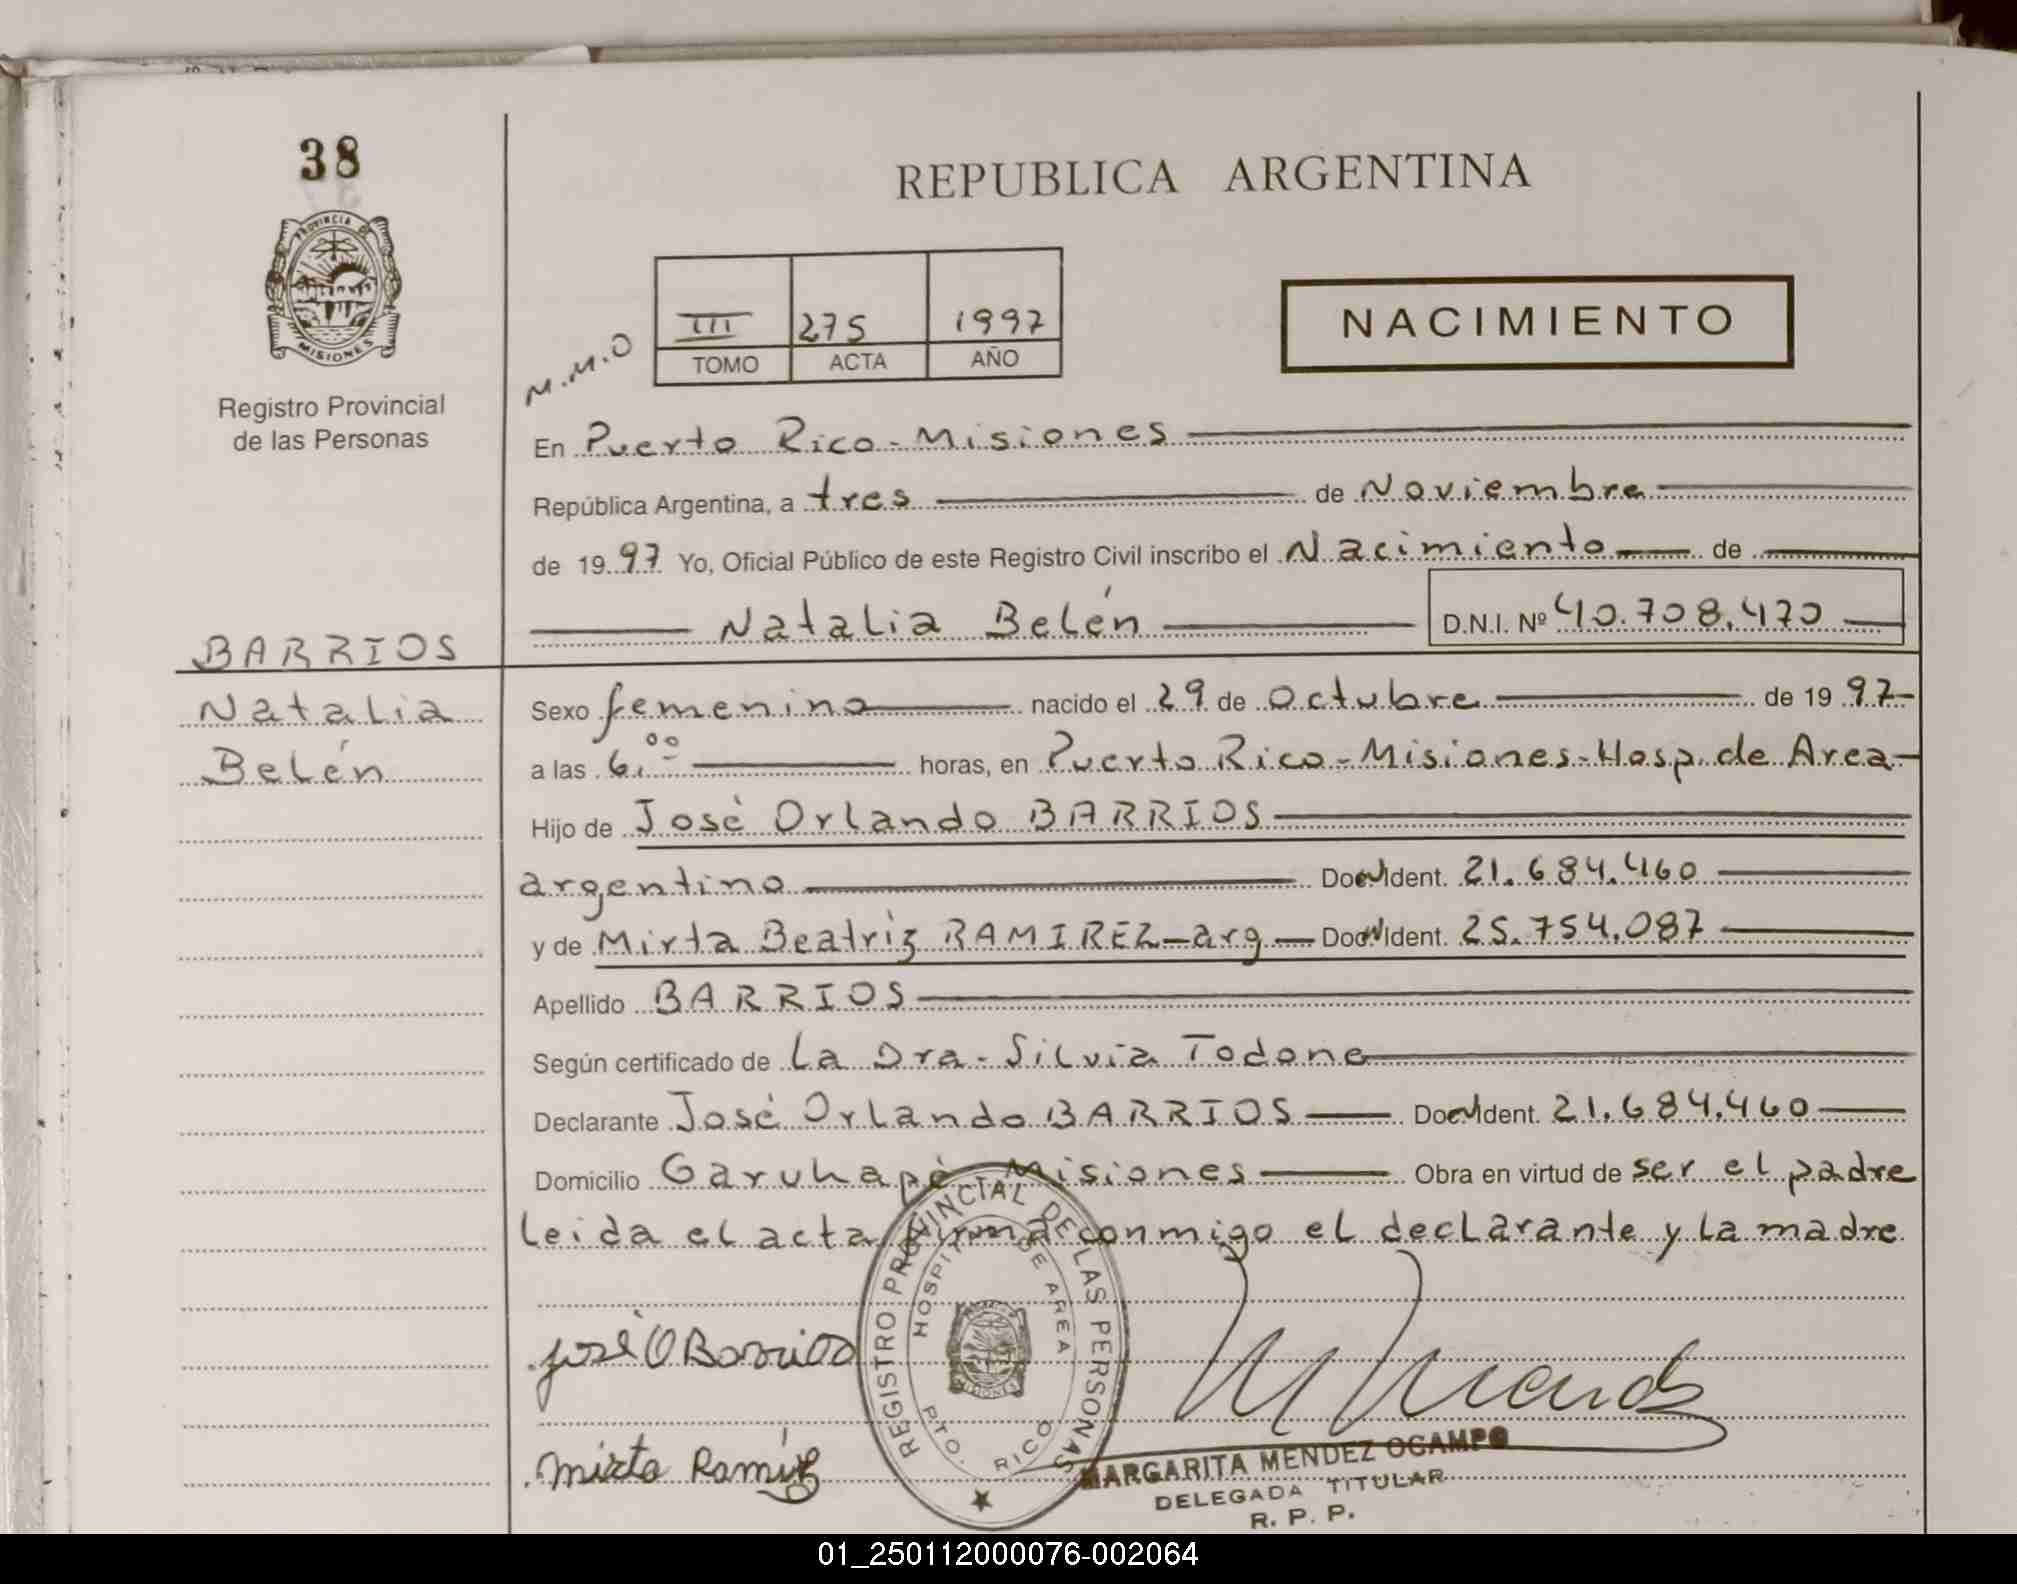 38
PROVINCIA DE
MISIONES
Registro Provincial
de las Personas
REPUBLICA ARGENTINA
M.M.O
III 275 1997
TOMO ACTA AÑO
NACIMIENTO
En Puerto Rico - Misiones
República Argentina, a tres de Noviembre
de 1997 Yo, Oficial Público de este Registro Civil inscribo el Nacimiento de
Natalia Belén D.N.I. Nº 40.708.470
BARRIOS
Natalia
Belén
Sexo femenino nacido el 29 de octubre de 1997
a las 6.00 horas, en Puerto Rico - Misiones - Hosp. de Area
Hijo de José Orlando BARRIOS
argentino Ident. 21.684.460
y de Mirta Beatriz RAMIREZ - arg Ident. 25.754.087
Apellido BARRIOS
Según certificado de la Dra. Silvia Todone
Declarante José Orlando BARRIOS Ident. 21.684.460
Domicilio Garuhapé Misiones Obra en virtud de ser el padre
leida el acta firma conmigo el declarante y la madre
José O Barrios
Mirta Ramirez
REGISTRO PROVINCIAL DE LAS PERSONAS
HOSPITAL DE AREA
PTO. RICO
MISIONES
MARGARITA MENDEZ OCAMPO
DELEGADA TITULAR
R. P. P.
01_250112000076-002064